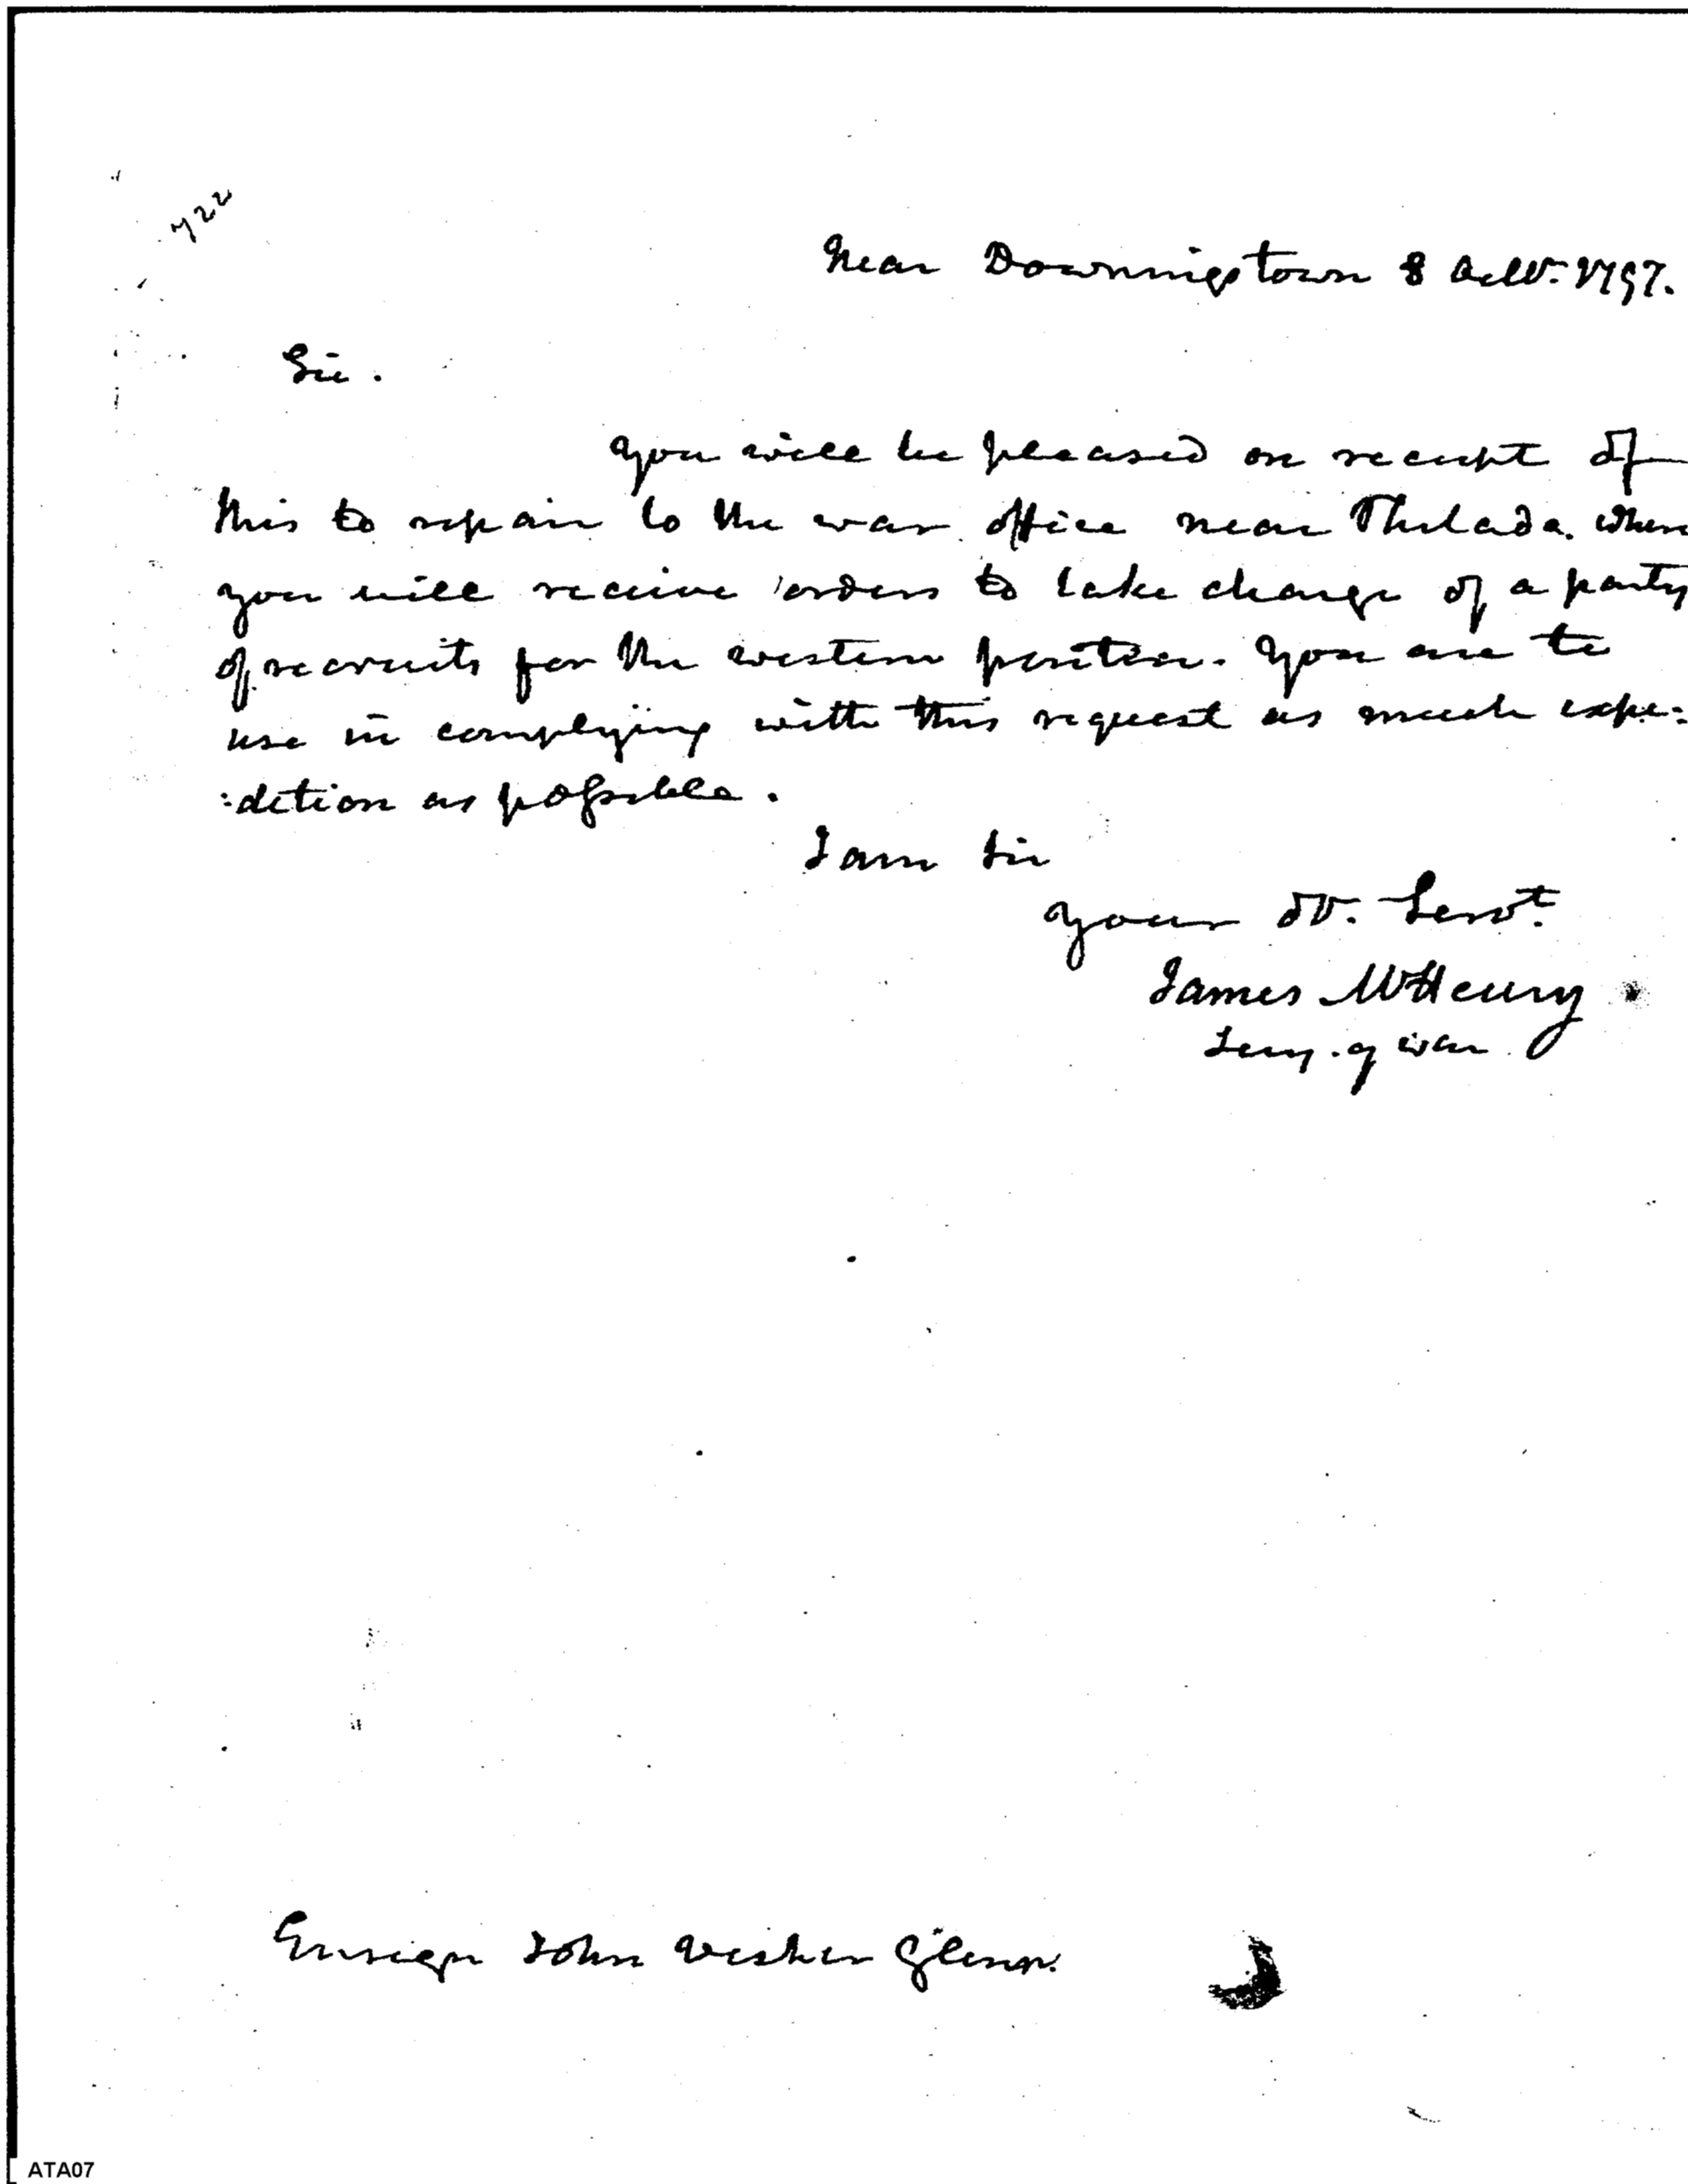 722
Near Downingstown 8 Octbr. 1797.
Sir.
You will be pleased on receipt of
this to repair to the war office near Philada. where
you will receive orders to take charge of a party
of recruits for the western frontier. You are to
use in complying with this request as much expe=
=dition as possible.
I am Sir
your ob. Servt.
James McHenry
Secy. of war
Ensign John Visher Glenn.
ATA07